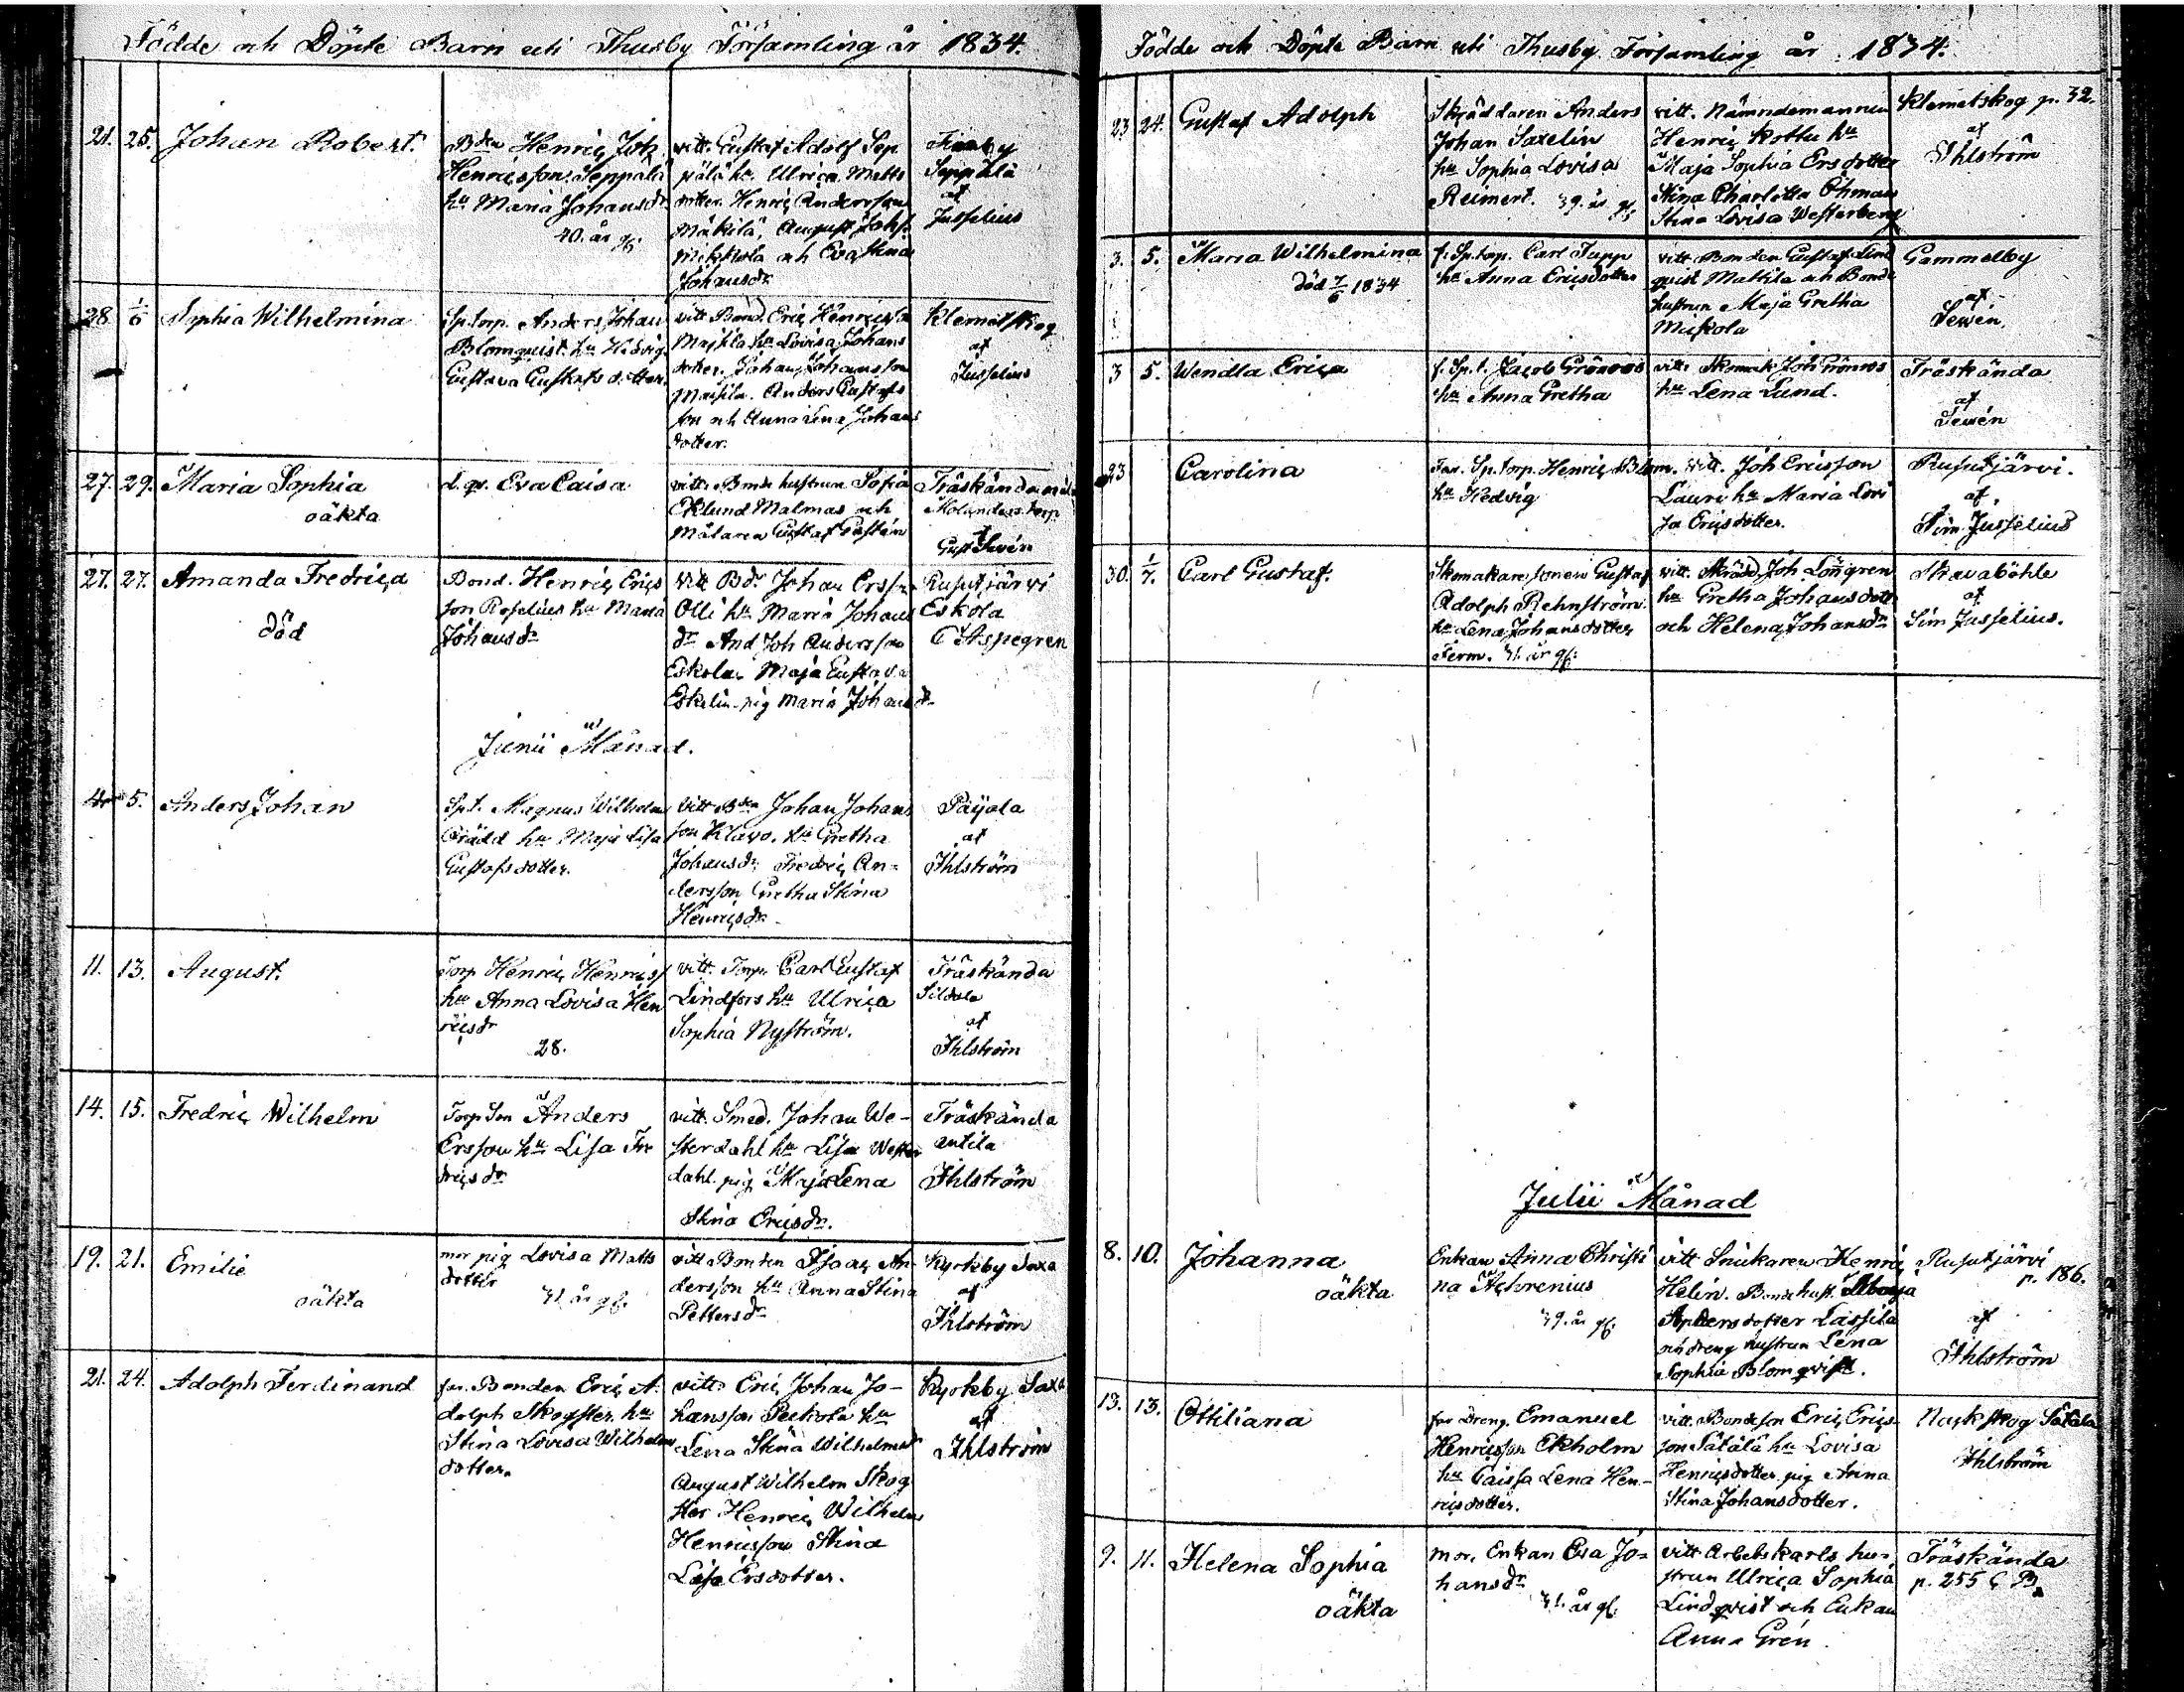 Födde och Döpte Barn uti Thusby Församling år 1834.
21. 25. Johan Robert.
Bden Henric Joh
Henricsson Seppälä
hu Maria Johansdr
40. år gl.
vitt. Gustaf Adolf Sep
pälä hu. Ulrica Matts
dotter. Henric Andersson
Mäkilä, August Johs.
Mikkola och Eva Stina
Johansdr
Finnby
Seppälä
af
Jusselius
28. 1/6 Sophia Wilhelmina
Sp.torp. Anders Johan
Blomquist. hu Hedvig
Gustava Gustafsdotter.
vitt Bond. Eric Henricsson
hu Lovisa Johans
dotter. Johan Johansson
Anders Gustafs
son och Anna Lena Johans
dotter.
Klemetskog
af
Jusselius
27. 29. Maria Sophia
oäkta
d. qv. Eva Caisa
vitt. Bonde hustrun Sofia
Eklund Malmas och
Målaren Gustaf Gustén
Träskända
Molanders torp
af
Gust Sevén
27. 27. Amanda Fredrica
död
Bond. Henric Erics
son Roselius hu Maria
Johansdr
vitt Bdr Johan Ersson
Olli hu Maria Johans
dr And Joh Andersson
Eskola Maja Gustava
Eskelin pig Maria Johansdr
Rusutjärvi
Eskola
C Aspegren
Junii Månad.
4 5. Anders Johan
Spt. Magnus Wilhelm
Gräld hu Maja Lisa
Gustafsdotter.
vitt Bden Johan Johans
son Klavo. hu Gretha
Johansdr Fredric An=
dersson Gretha Stina
Henricsdr
Päijola
af
Ihlström
11. 13. August.
Torp Henric Henricss
hu Anna Lovisa Hen
ricsdr
28.
vitt. Torp. Carl Gustaf
Lindfors hu Ulrica
Sophia Nyström.
Träskända
af
Ihlström
14. 15. Fredric Wilhelm
Torp Son Anders
Ersson hu Lisa Fre
dricsdr
vitt. Smed. Johan We-
sterdahl hu Lisa Wester
dahl. pig Maja Lena
Stina Ericsdr.
Träskända
antila
Ihlström
19. 21. Emilie
oäkta
mor pig Lovisa Matts
dotter
31 år gl.
vitt Bonden Isaac An
dersson hu Anna Stina
Pettersdr
Kyrkby Saxa
af
Ihlström
21. 24. Adolph Ferdinand
far. Bonden Eric A.
dolph Skogster hu
Stina Lovisa Wilhelms
dotter.
vitt. Eric Johan Jo-
hansson Peckola hu
Lena Stina Wilhelmsdr
August Wilhelm Skog
ster Henric Wilhelm
Henricsson Stina
Lisa Ersdotter.
Kyrkby Saxa
af
Ihlström
Födde och Döpte Barn uti Thusby Församling år 1834.
23 24. Gustaf Adolph
Skräddaren Anders
Johan Saxelin
hu Sophia Lovisa
Reimert. 39. år gl.
vitt. Nämndemannen
Henric Rottu hu
Maja Sophia Ersdotter
Stina Charlotta Öhman
Stina Lovisa Westerberg
Klemetskog p. 32.
af
Ihlström
3. 5. Maria Wilhelmina
död 7/6 1834
f. Sp.torp. Carl Tupp
hu Anna Ericsdotter
vitt Bonden Gustaf Lind
quist Mattila och Bonde
hustrun Maja Gretha
Muskola
Gammelby
af
Sevén.
3 5. Wendla Erica
f. Sp.t. Jacob Grönroos
hu Anna Gretha
vitt. Skomak Joh Grönroos
hu Lena Lund.
Träskända
af
Sevén
23 Carolina
Far. Sp.torp. Henric Blom.
hu Hedvig
vitt. Joh Ericsson
Lauri hu Maria Lovi
sa Ericsdotter.
Rusutjärvi.
af.
Sim. Jusselius
30. 1/7. Carl Gustaf.
Skomakaresonen Gustaf
Adolph Rehnström.
hu Lena Johansdotter
Ferm. 31. år gl.
vitt. Skrädd. Joh Löngren
hu Gretha Johansdotter
och Helena Johansdr
Skavaböhle
af
Sim Jusselius.
Julii Månad
8. 10. Johanna
oäkta
Enkan Anna Christi
na Achrenius
39. år gl.
vitt Snickaren Henric
Helin. Bonde hust.
Andersdotter Lassila
och dreng hustrun Lena
Sophia Blomqvist.
Rusutjärvi
p. 186.
af
Ihlström
13. 13. Ottiliana
far Dreng. Emanuel
Henricsson Ekholm
hu Caissa Lena Hen-
ricsdotter.
vitt. Bondeson Eric Erics
son Sätälä hu Lovisa
Henricsdotter pig Anna
Stina Johansdotter.
Nackskog Sätälä
Ihlström
9. 11. Helena Sophia
oäkta
mor. Enkan Eva Jo=
hansdr
31. år gl.
vitt Arbetskarls hu=
strun Ulrica Sophia
Lindqvist och Enkan
Anna Grén.
Träskända
p. 255 C. B.